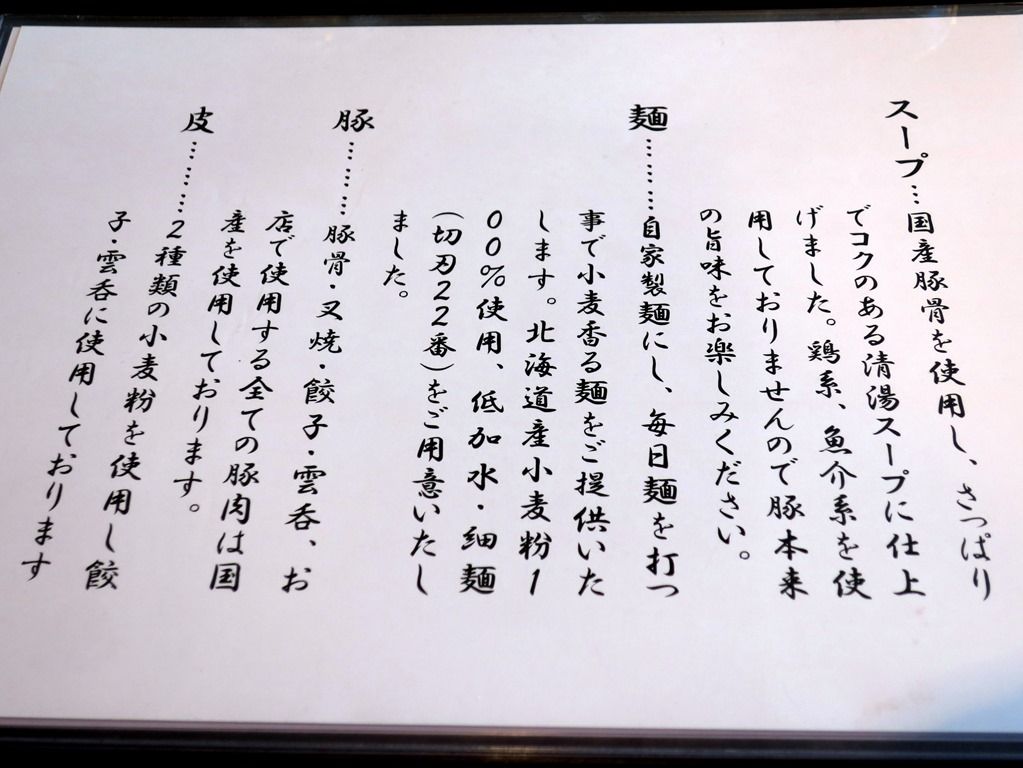 スープ…国産豚骨を使用し、さっぱり
でコクのある清湯スープに仕上
げました。鶏系、魚介系を使
用しておりませんので豚本来
の旨味をお楽しみください。
麺………自家製麺にし、毎日麺を打つ
事で小麦香る麺をご提供いた
します。北海道産小麦粉1
00%使用、低加水・細麺
(切刃22番)をご用意いたし
ました。
豚………豚骨・叉焼・餃子・雲呑、お
店で使用する全ての豚肉は国
産を使用しております。
皮………2種類の小麦粉を使用し餃
子・雲呑に使用しております